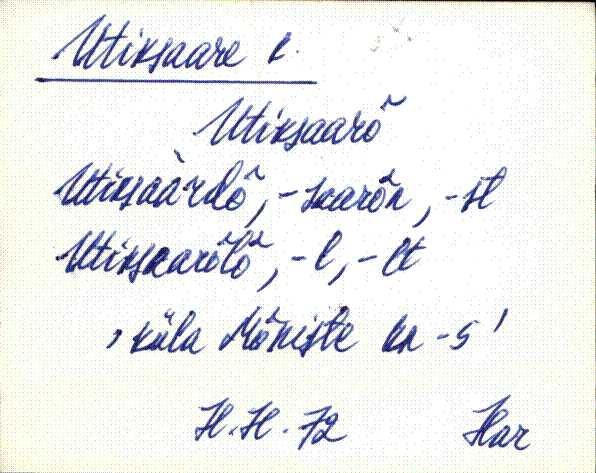 Utiksaare k.
Utiksaarõ
Utiksaàrdõ, -saarõn, -st
Utiksaarõlõ, -l, -lt
, küla Mõniste kn -s'
H.H. 72 Har